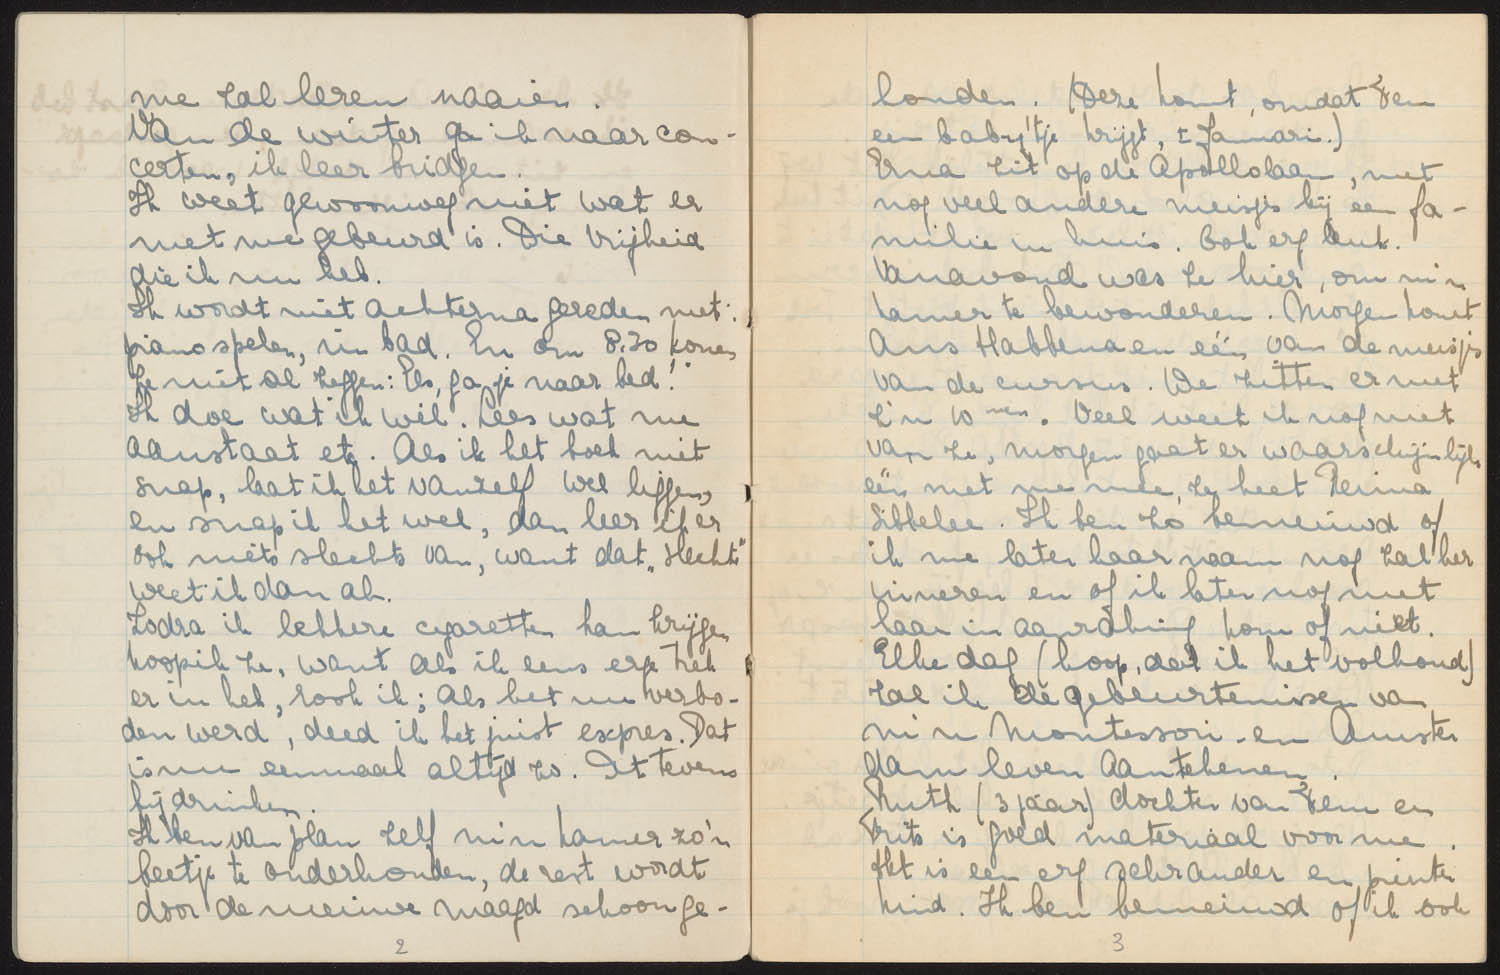 me zal leren naaien.
Van de winter ga ik naar con-
certen, ik leer bridgen.
Ik weet gewoonweg niet wat er
met me gebeurd is. Die vrijheid
die ik nu heb.
Ik wordt niet achterna gereden met:
pianospelen, in bad. En om 8.30 komen
ze niet al zeggen: Els, ga je naar bed!"
Ik doe wat ik wil. Lees wat me
aanstaat etc. Als ik het boek niet
snap, laat ik het vanzelf wel liggen,
en snap ik het wel, dan leer ik er
ook niets slechts van, want dat „slechts"
weet ik dan al.
Zodra ik lekkere cigaretten kan krijgen
koop ik ze, want als ik eens erge trek
er in heb, rook ik; als het me verbo-
den werd, deed ik het juist expres. Dat
is nu eenmaal altijd zo. Dit tevens
bij drinken.
Ik ben van plan zelf m'n kamer zo'n
beetje te onderhouden, de rest wordt
door de nieuwe maagd schoonge-
2
houden. (Deze komt, omdat Fem
een baby'tje krijgt, ± Januari.)
Erna zit op de Apollolaan, met
nog veel andere meisjes bij een fa-
milie in huis. Ook erg leuk.
Vanavond was ze hier, om m'n
kamer te bewonderen. Morgen komt
Ans Habbema en één van de meisjes
van de cursus. We zitten er met
z'n 10 nen. Veel weet ik nog niet
van ze, morgen gaat er waarschijnlijk
één met me mee, ze heet Perina
Sibbelee. Ik ben zo benieuwd of
ik me later haar naam nog zal her
inneren en of ik later nog met
haar in aanraking kom of niet.
Elke dag (hoop, dat ik het volhoud)
zal ik de gebeurtenissen van
m'n Montessori- en Amster
dam leven aantekenen.
Ruth (3 jaar) dochter van Fem en
Frits is goed materiaal voor me.
Het is een erg schrander en pienter
kind. Ik ben benieuwd of ik ook
3